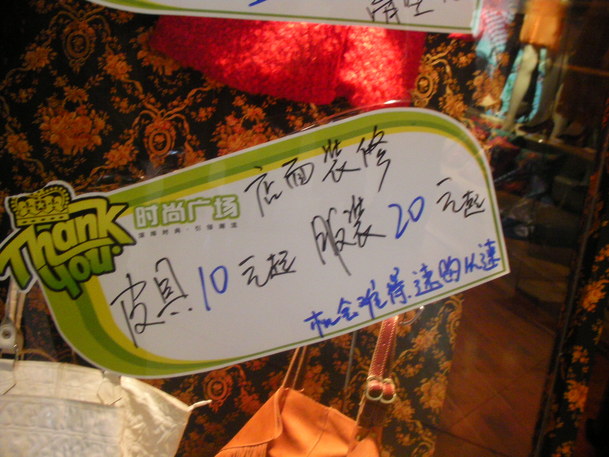 Thank
you
时尚广场
店面装修
皮具10元起 服装20元起
机会难得 速购从速